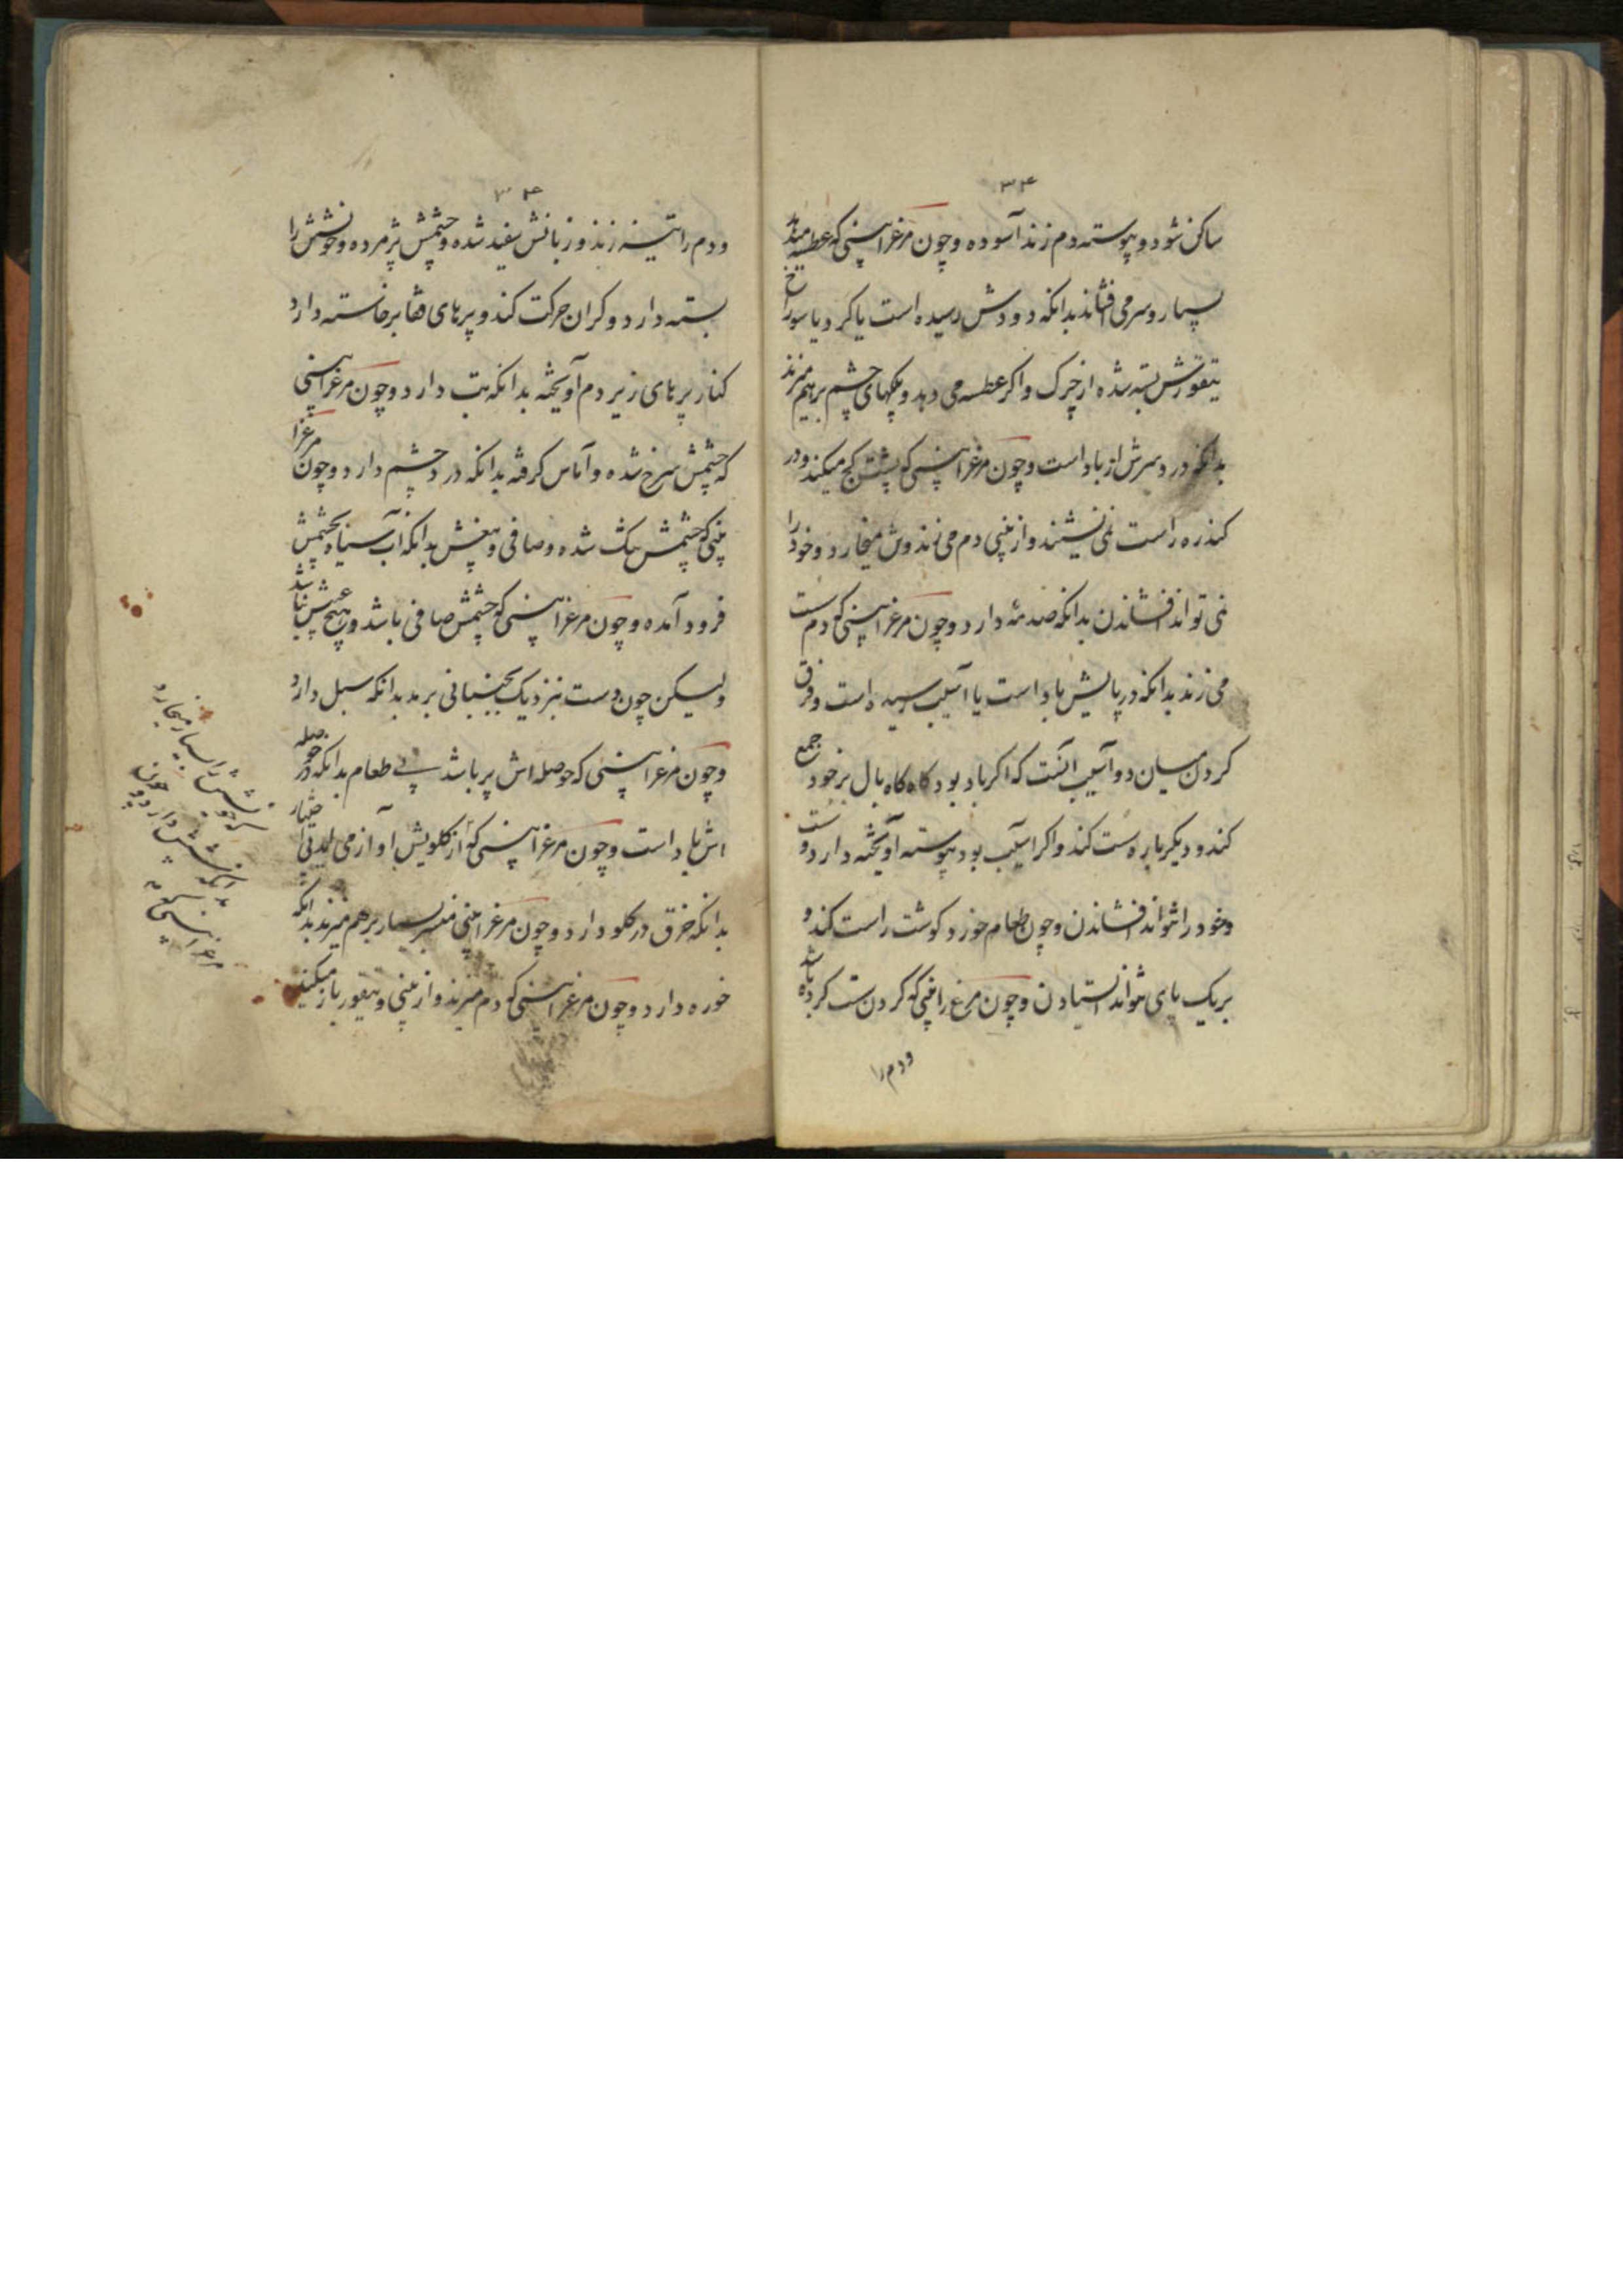 ۳۴
ساکن شود و پیوسته دم زند آسوده و چون مرغ را بینی که عطسه میدهد
بسیار و سر می افشاند بدانکه دودش رسیده است یا کرد یا سوراخ
تنقورش بسته شده از چرک و اکر عطسه می دهد و پلکهای چشم بر هم میزند
بدانکه درد سرش از باد است و چون مرغ را بینی که پشت کج میکند و در
کنذره راست نمی نشیند و از بینی دم می زند و ش میخارد و خود را
نمی تواند افشاندن بدانکه صدمهٔ دارد و چون مرغ را بینی که دم سست
می زند بدانکه در پایش باد است یا آسیب رسیده است و فرق
کردن میان دو آسیب آنست که اکر باد بود کاه کاه بال بر خود جمع
کند و دیکر باره سست کند و اکر آسیب بود پیوسته آویخته دارد و سست
و خود را نتواند افشاندن و چون طعام خورد کوشت راست کند و
بر یک پای نتواند استیادن و چون مرغ را بینی که کردن سست کرده باشد
و دم را
۳۴
و دم را تیز زند و زبانش سفید شده و چشمش پژمرده و خونش را
بسته دارد و کران حرکت کند و پرهای قفا برخاسته دارد
کنار پرهای زیر دم آویخته بدانکه تب دارد و چون مرغ را بینی
که چشمش سرخ شده و آماس کرفته بدانکه درد چشم دارد و چون مرغ را
بینی که چشمش تنک شده و صافی و بنفش بدانکه آب سیاه بچشمش
فرود آمده و چون مرغ را بینی که چشمش صافی باشد و هیچ عیبش نباشد
ولیکن چون دست نزدیک بجنبانی برمد بدانکه سبل دارد
و چون مرغ را بینی که حوصله اش پر باشد بی طعام بدانکه در حوصله
اش باد است و چون مرغ را بینی که از کلویش آواز می آید بی اختیار
بدانکه خرق در کلو دارد و چون مرغ را بینی منسر بسیار بر هم میزند بدانکه
خوره دارد و چون مرغ را بینی که دم میزند و از بینی و تنقور باز میکند
مرغ را بینی که
بدانکه شپش دارد و چون
خویش را بسیار میخارد